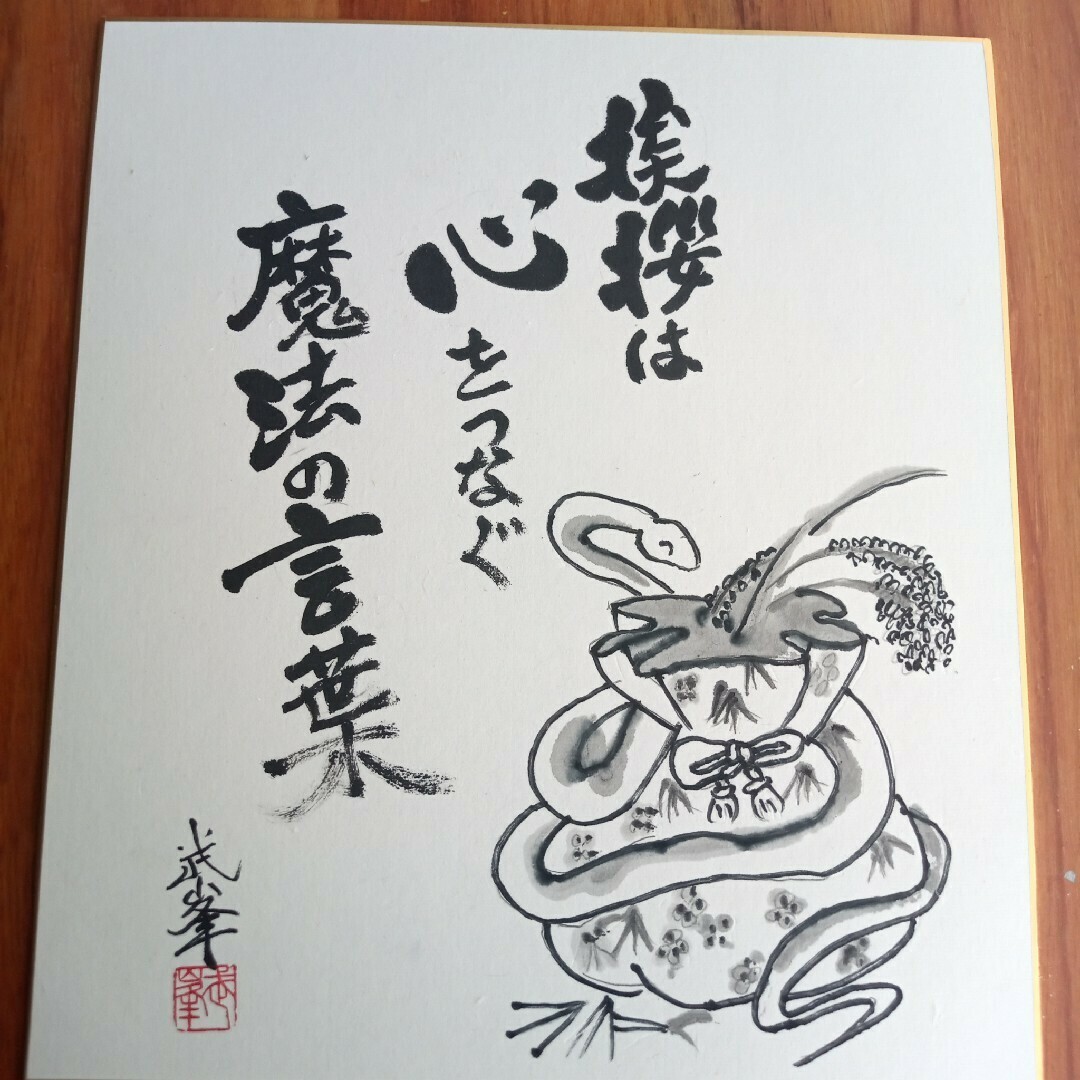 挨拶は
心をつなぐ
魔法の言葉
武峯